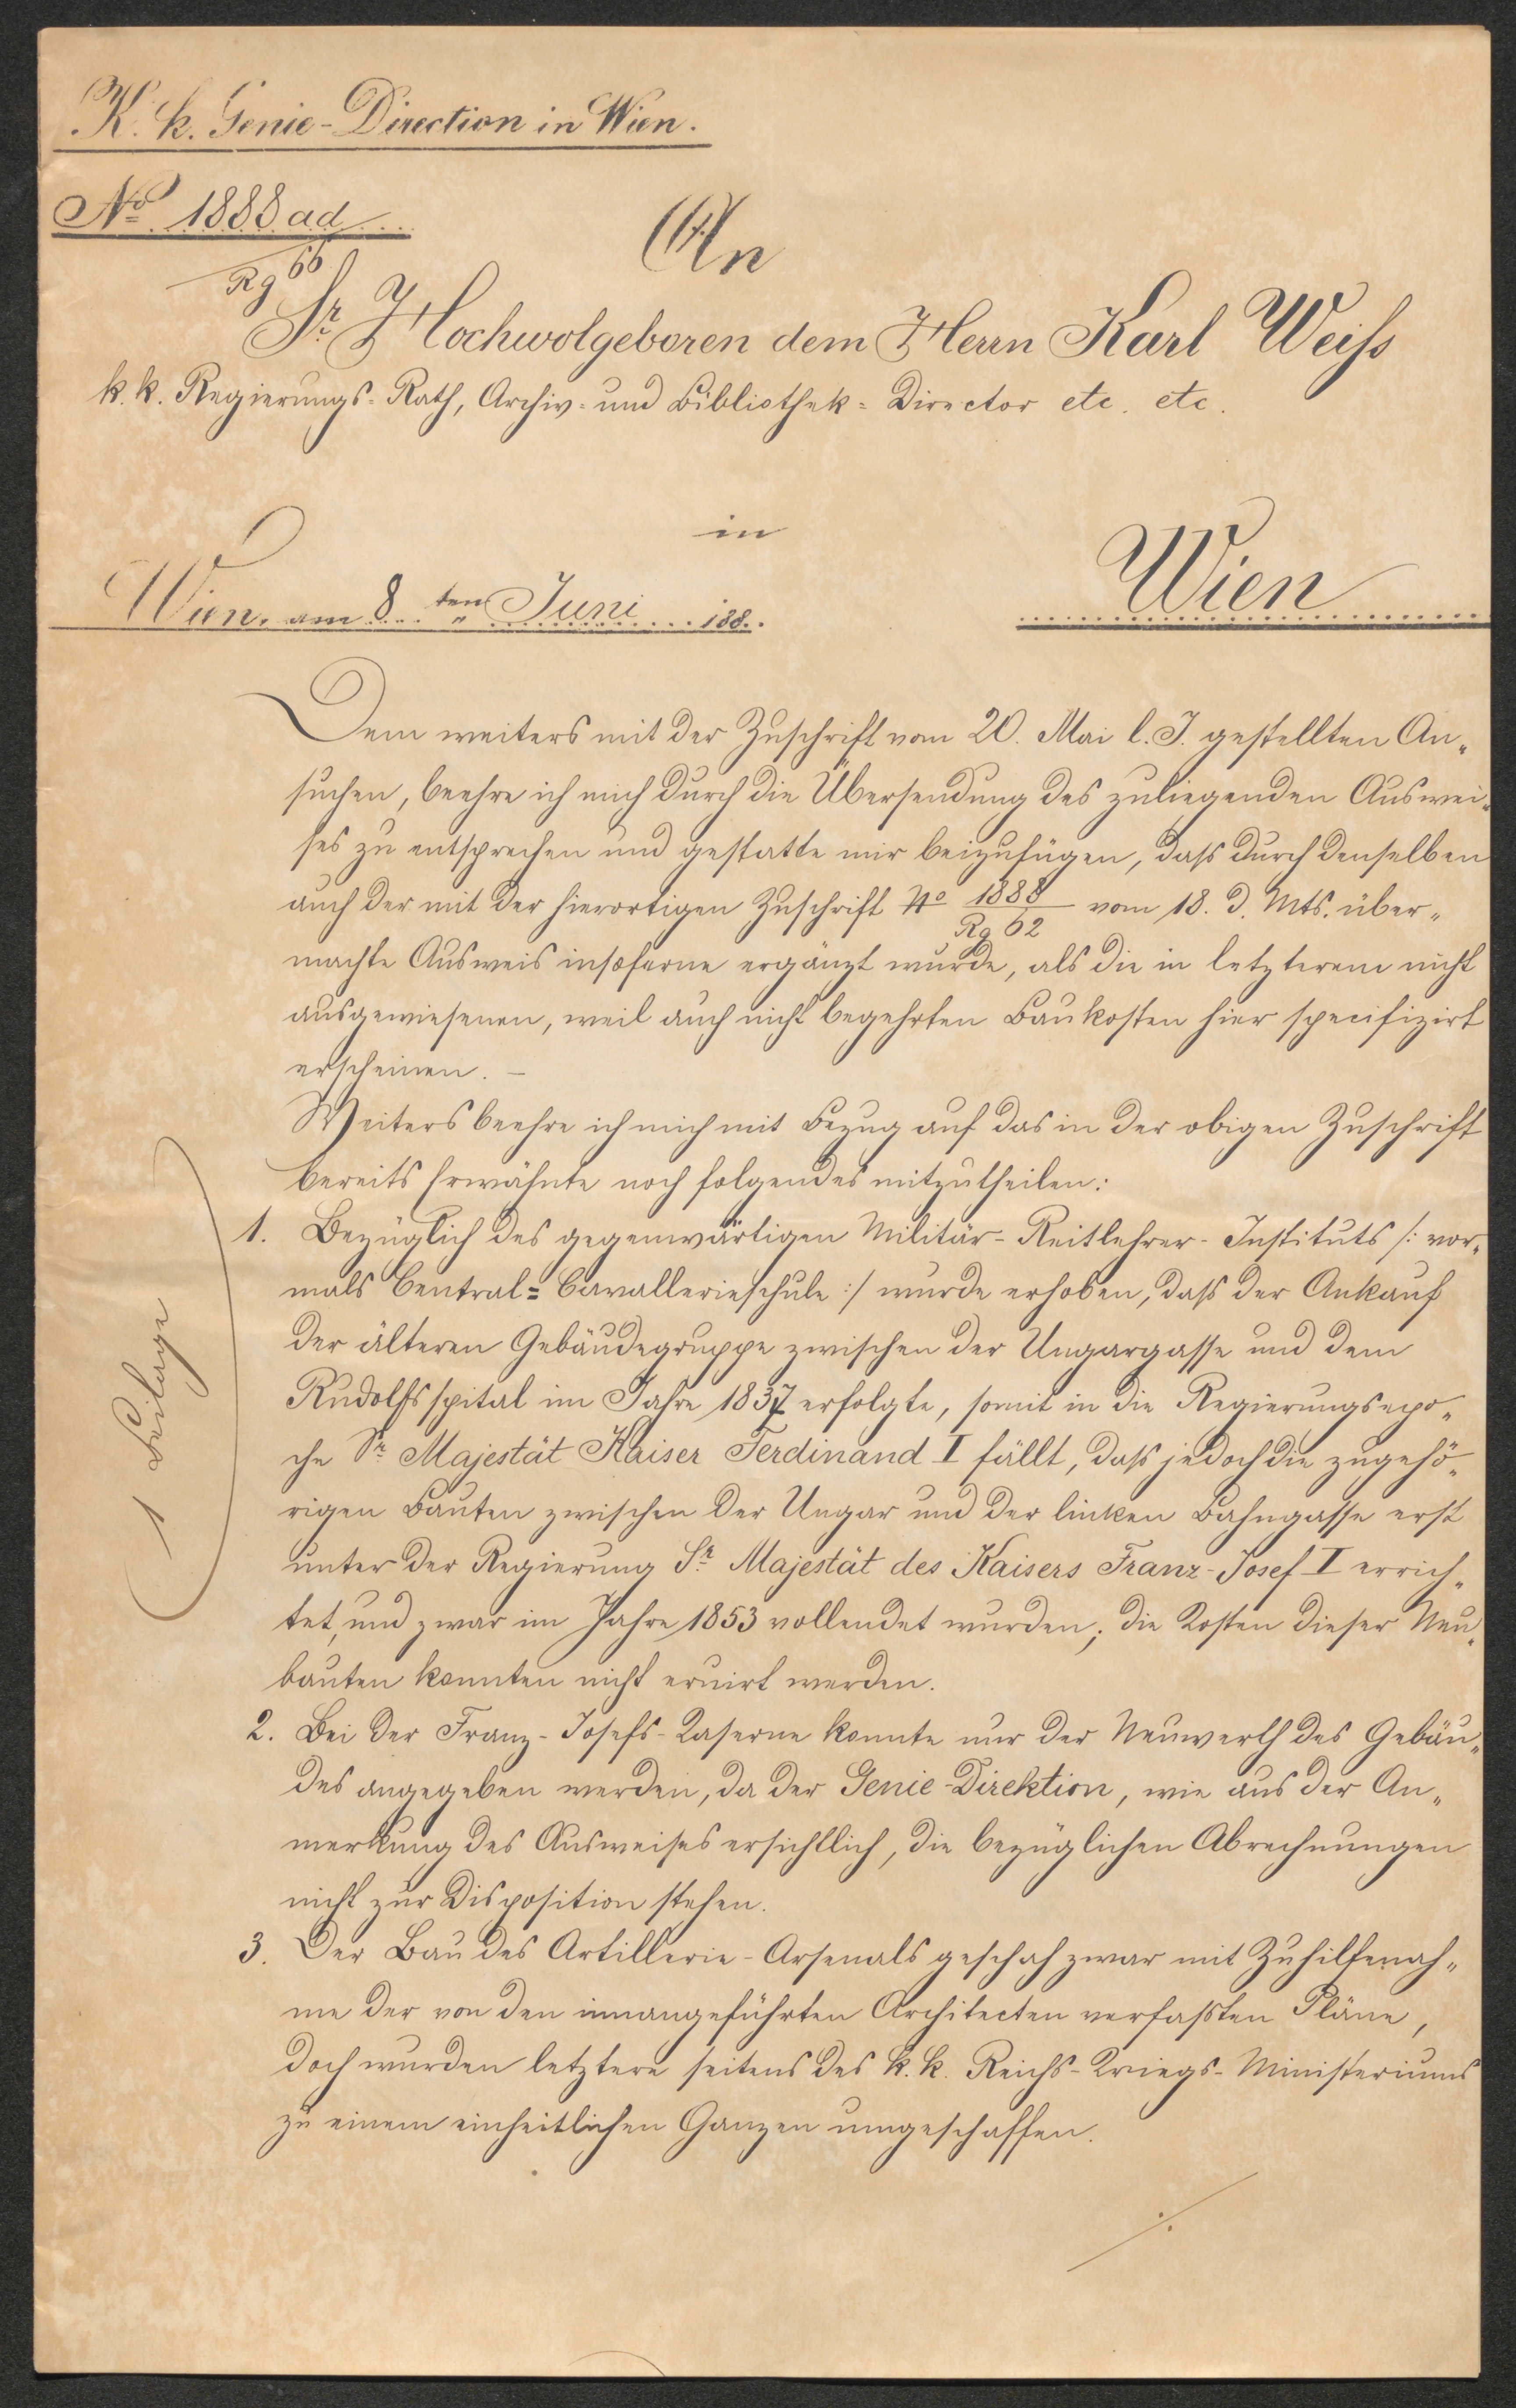 K. k. Genie-Direction in Wien.
No 1888 ad
Rg 66
An
Sr Hochwolgeboren dem Herrn Karl Weiss
k. k. Regierungs-Rath, Archiv- und Bibliothek-Director etc. etc.
in
Wien, am 8ten Juni 188..
Wien
Dem weiters mit der Zuschrift vom 20. Mai l. J. gestellten An-
suchen, beehre ich mich durch die Übersendung des zuliegenden Auswei-
ses zu entsprechen und gestatte mir beizufügen, daß durch denselben
auch der mit der hierortigen Zuschrift No 1888/Rg 62 vom 18. d. Mts. über-
machte Ausweis insoferne ergänzt wurde, als die in letzterem nicht
ausgewiesenen, weil auch nicht begehrten Baukosten hier specifizirt
erscheinen. –
Weiters beehre ich mich mit Bezug auf das in der obigen Zuschrift
bereits Erwähnte noch folgendes mitzutheilen:
1 Beilage
1. Bezüglich des gegenwärtigen Militär-Reitlehrer-Instituts /: vor-
mals Central-Cavallerieschule :/ wurde erhoben, daß der Ankauf
der älteren Gebäudegruppe zwischen der Ungargasse und dem
Rudolfsspital im Jahre 1837 erfolgte, somit in die Regierungsepo-
che Sr Majestät Kaiser Ferdinand I fällt, daß jedoch die zugehö-
rigen Bauten zwischen der Ungar und der linken Bahngasse erst
unter der Regierung Sr Majestät des Kaisers Franz-Josef I errich-
tet, und zwar im Jahre 1853 vollendet wurden; die Kosten dieser Neu-
bauten konnten nicht eruirt werden.
2. Bei der Franz-Josefs-Kaserne konnte nur der Neuwerth des Gebäu-
des angegeben werden, da der Genie-Direktion, wie aus der An-
merkung des Ausweises ersichtlich, die bezüglichen Abrechnungen
nicht zur Disposition stehen.
3. Der Bau des Artillerie-Arsenals geschah zwar mit Zuhilfenah-
me der von den innangeführten Architecten verfaßten Pläne,
doch wurden letztere seitens des k. k. Reichs-Kriegs-Ministeriums
zu einem einheitlichen Ganzen umgeschaffen.
./.